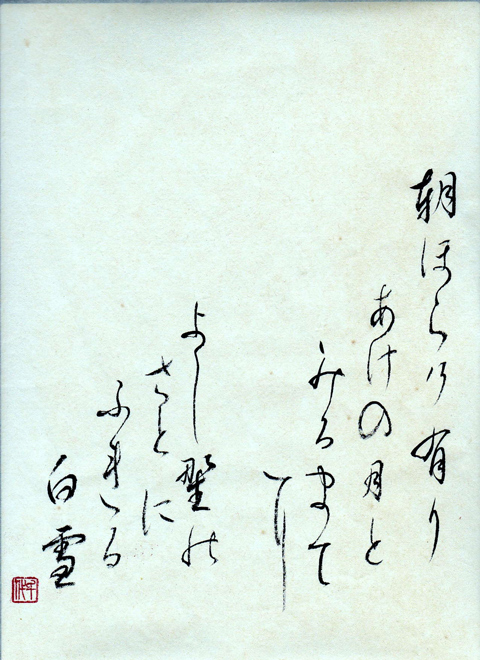 朝ほらけ有り
あけの月と
みるまて
に
よし野の
さとに
ふれる
白雪